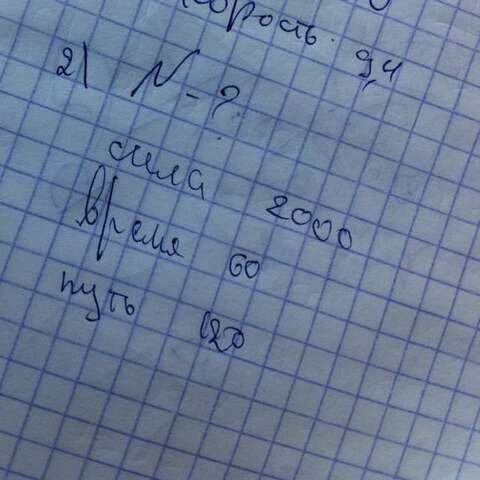 скорость. 9,4
2) N - ?
сила 2000
время 60
путь 120